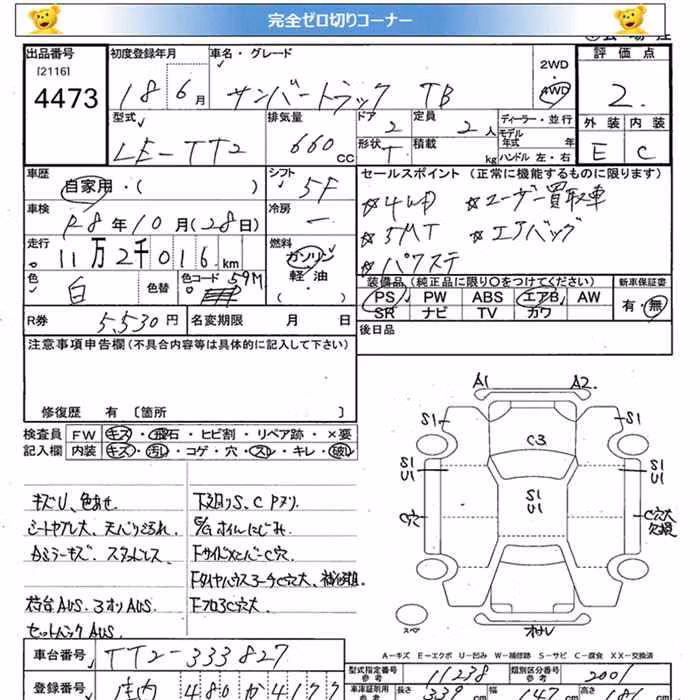 完全ゼロ切りコーナー
出品番号 初度登録年月 車名・グレード 2WD 評価点
[2116]
4473 18 6月 サンバートラック TB 4WD 2.
型式 排気量 ドア 定員 ディーラー・並行 外装 内装
LE-TT2 660CC 2 2人 モデル年式 年 E C
形状 T 積載 kg ハンドル 左・右
車歴 シフト セールスポイント (正常に機能するものに限ります)
自家用・( ) 5F ☆4WD ☆ユーザー買取車
車検 冷房
R8年10月(28日) ー ☆5MT ☆エアバッグ
走行 燃料
11万2千016km ガソリン ☆パワステ
軽油
( )
色 色替 色コード 59M 装備品 (純正品に限り〇をつけてください) 新車保証書
白 PS PW ABS エアB AW 有・無
SR ナビ TV カワ
R券 5,530円 名変期限 月 日 後日品
注意事項申告欄 (不具合内容等は具体的に記入して下さい)
修復歴 有 〔箇所 〕
検査員 FW キズ・飛石・ヒビ割・リペア跡・×要
記入欄 内装 キズ・汚レ・コゲ・穴・スレ・キレ・破レ
キズU、色あせ 下廻りS、C
シートヤブレ大、天バリ S/Gホイルにじみ
スタットレス FサイドメンバーC穴
C穴大、補修
荷台AUS、3オリAUS FフロアC穴大
セットバックAUS
A1 A2.
S1 S1
C3
S1 U1 S1 U1 S1 U1
C穴 C穴大 欠損
スペア
A-キズ E-エクボ U-凹み W-補修跡 S-サビ C-腐食 XX-交換済
車台番号 TT2-333827
型式指定番号 参考 11238 類別区分番号 参考 2001
登録番号 480 か 4177
車庫証明用 参考 長さ 339 cm 幅 147 cm 高さ 181 cm